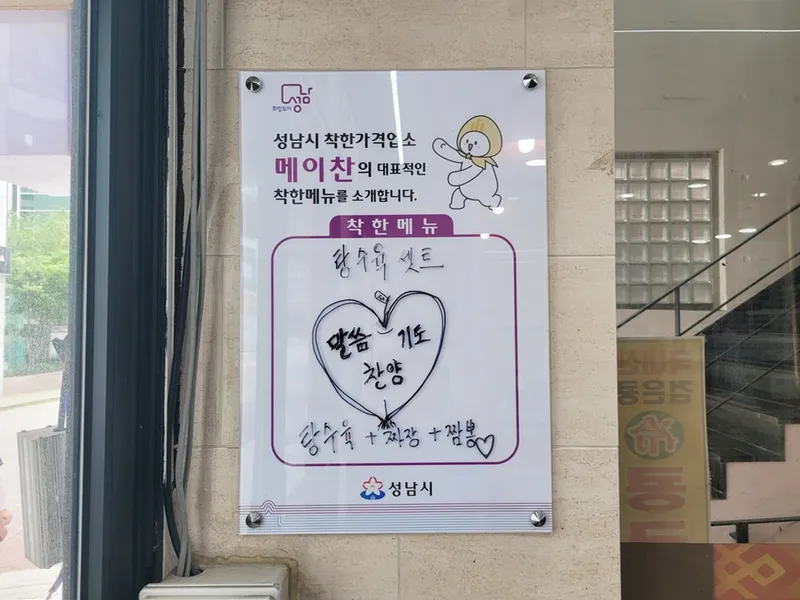 희망도시 성남
성남시 착한가격업소
메이찬의 대표적인
착한메뉴를 소개합니다.
착한메뉴
탕수육 셋트
말씀 기도
찬양
탕수육 + 짜장 + 짬뽕♡
성남시
검은콩